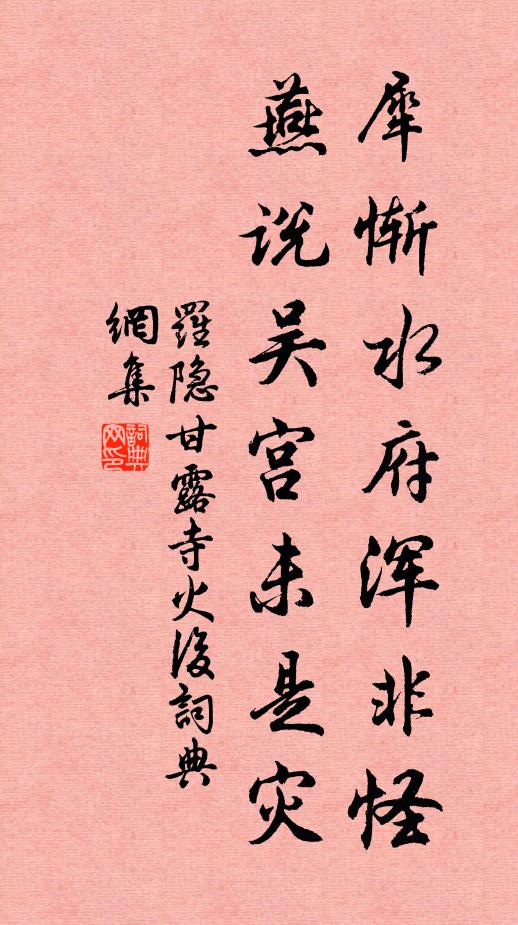 犀惭水府浑非怪
燕说吴宫未是灾
羅隐甘露寺火後詞典
網集
詞典
网印